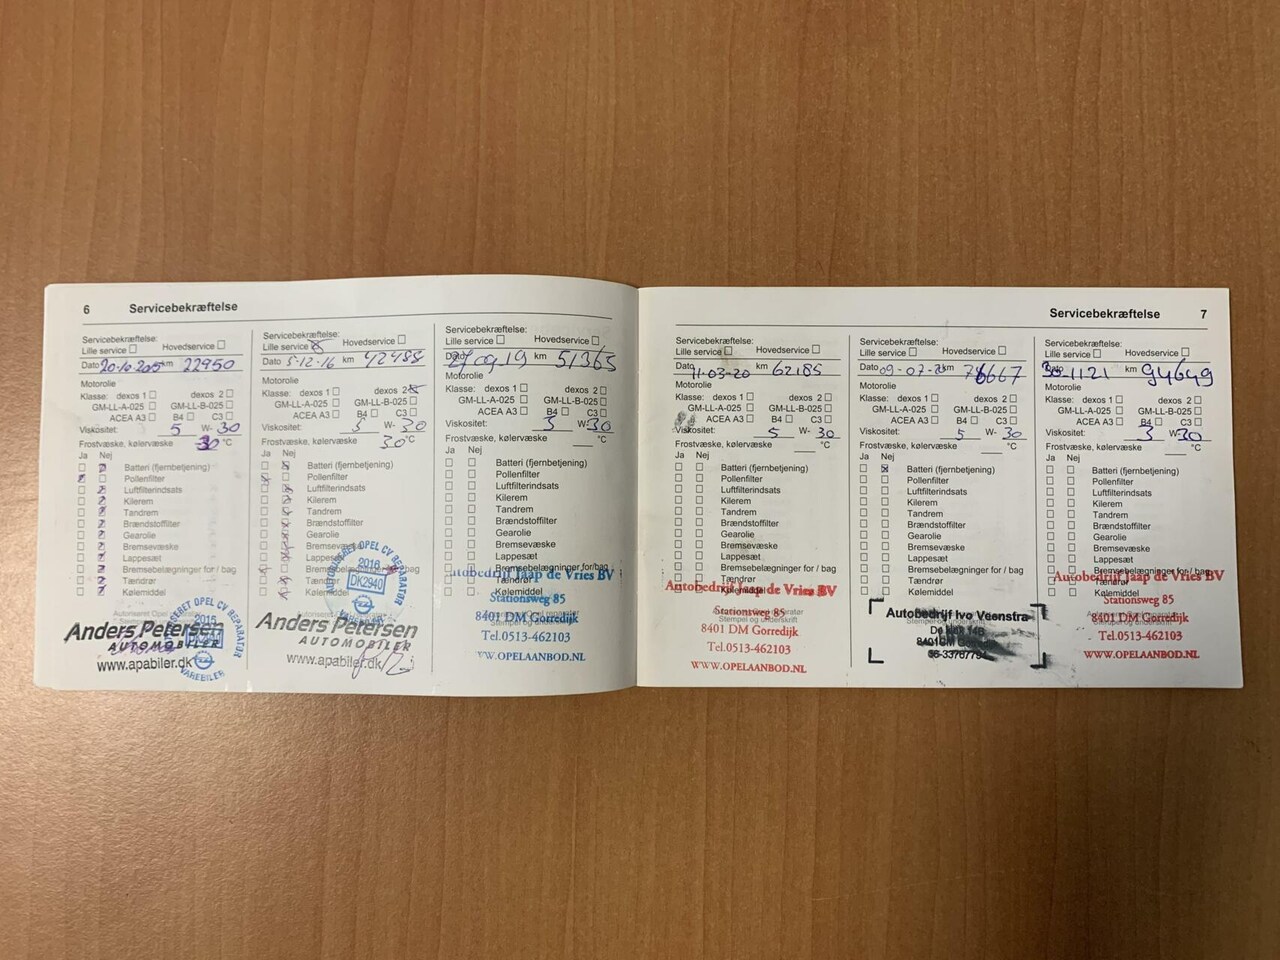 6 Servicebekræftelse
Servicebekræftelse:
Lille service Hovedservice
Dato 20-10-2015 km 22950
Motorolie
Klasse: dexos 1 dexos 2
GM-LL-A-025 GM-LL-B-025
ACEA A3 B4 C3
Viskositet: 5 W- 30
Frostvæske, kølervæske 30 °C
Ja Nej
Batteri (fjernbetjening)
Pollenfilter
Luftfilterindsats
Kilerem
Tandrem
Brændstoffilter
Gearolie
Bremsevæske
Lappesæt
Bremsebelægninger for / bag
Tændrør
Kølemiddel
Anders Petersen
AUTOMOBILER
www.apabiler.dk
2015
VAREBILER
Servicebekræftelse:
Lille service Hovedservice
Dato 5-12-16 km 42488
Motorolie
Klasse: dexos 1 dexos 2
GM-LL-A-025 GM-LL-B-025
ACEA A3 B4 C3
Viskositet: 5 W- 30
Frostvæske, kølervæske 30 °C
Ja Nej
Batteri (fjernbetjening)
Pollenfilter
Luftfilterindsats
Kilerem
Tandrem
Brændstoffilter
Gearolie
Bremsevæske
Lappesæt
Bremsebelægninger for / bag
Tændrør
Kølemiddel
AUTORISERET OPEL CV REPARATØR
2016
DK2940
VAREBILER
Anders Petersen
AUTOMOBILER
www.apabiler.dk
Servicebekræftelse:
Lille service Hovedservice
Dato 09 19 km 51365
Motorolie
Klasse: dexos 1 dexos 2
GM-LL-A-025 GM-LL-B-025
ACEA A3 B4 C3
Viskositet: 5 W- 30
Frostvæske, kølervæske °C
Ja Nej
Batteri (fjernbetjening)
Pollenfilter
Luftfilterindsats
Kilerem
Tandrem
Brændstoffilter
Gearolie
Bremsevæske
Lappesæt
Bremsebelægninger for / bag
Tændrør
Kølemiddel
Autobedrijf Jaap de Vries BV
Stationsweg 85
8401 DM Gorredijk
Tel.0513-462103
WWW.OPELAANBOD.NL
Servicebekræftelse 7
Servicebekræftelse:
Lille service Hovedservice
Dato 11-03-20 km 62185
Motorolie
Klasse: dexos 1 dexos 2
GM-LL-A-025 GM-LL-B-025
ACEA A3 B4 C3
Viskositet: 5 W- 30
Frostvæske, kølervæske °C
Ja Nej
Batteri (fjernbetjening)
Pollenfilter
Luftfilterindsats
Kilerem
Tandrem
Brændstoffilter
Gearolie
Bremsevæske
Lappesæt
Bremsebelægninger for / bag
Tændrør
Kølemiddel
Autobedrijf Jaap de Vries BV
Stationsweg 85
8401 DM Gorredijk
Tel.0513-462103
WWW.OPELAANBOD.NL
Servicebekræftelse:
Lille service Hovedservice
Dato 09-07- km
Motorolie
Klasse: dexos 1 dexos 2
GM-LL-A-025 GM-LL-B-025
ACEA A3 B4 C3
Viskositet: 5 W- 30
Frostvæske, kølervæske °C
Ja Nej
Batteri (fjernbetjening)
Pollenfilter
Luftfilterindsats
Kilerem
Tandrem
Brændstoffilter
Gearolie
Bremsevæske
Lappesæt
Bremsebelægninger for / bag
Tændrør
Kølemiddel
Autobedrijf Ivo Veenstra
Servicebekræftelse:
Lille service Hovedservice
Dato 30-11-21 km 94649
Motorolie
Klasse: dexos 1 dexos 2
GM-LL-A-025 GM-LL-B-025
ACEA A3 B4 C3
Viskositet: 5 W 30
Frostvæske, kølervæske °C
Ja Nej
Batteri (fjernbetjening)
Pollenfilter
Luftfilterindsats
Kilerem
Tandrem
Brændstoffilter
Gearolie
Bremsevæske
Lappesæt
Bremsebelægninger for / bag
Tændrør
Kølemiddel
Autobedrijf Jaap de Vries BV
Stationsweg 85
8401 DM Gorredijk
Tel.0513-462103
WWW.OPELAANBOD.NL